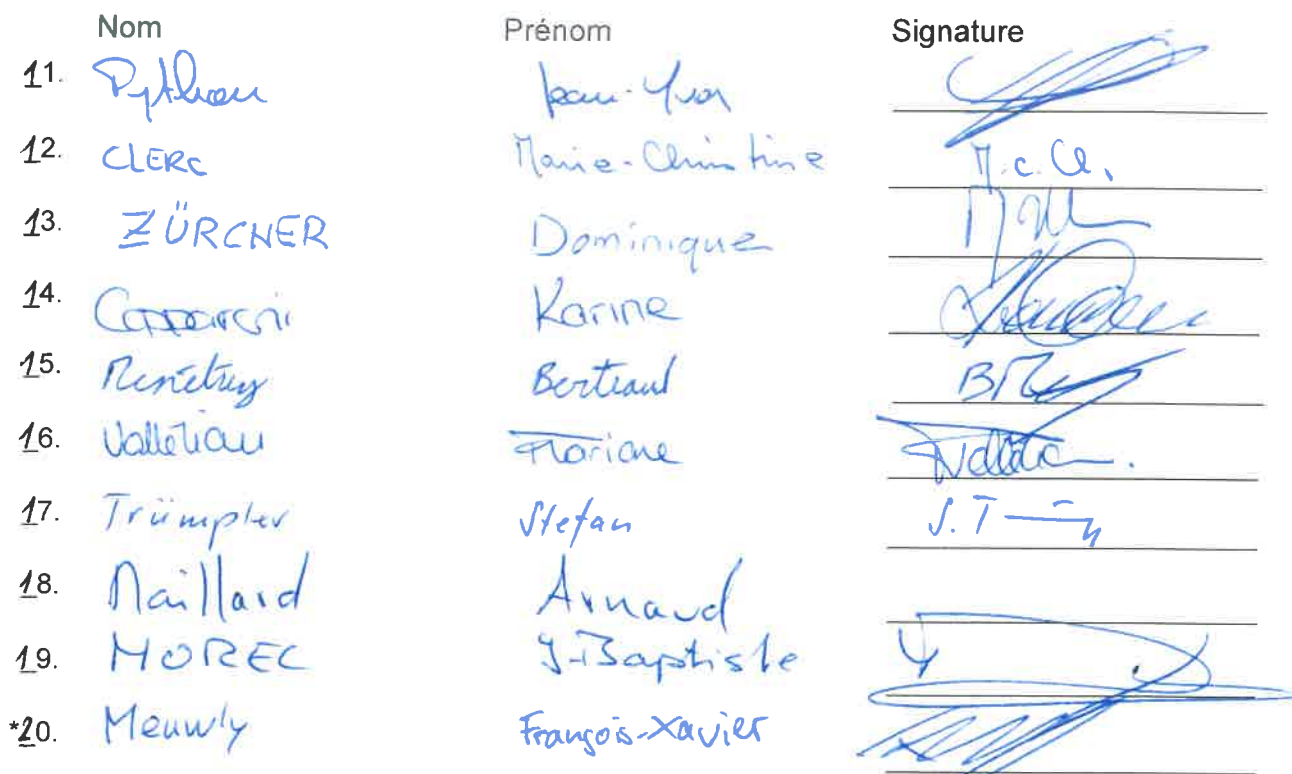 Nom Prénom Signature
11. Python Jean-Yves
12. CLERC Marie-Christine M.C.Cl.
13. ZÜRCHER Dominique
14. Karine
15. Menétrey Bertrand
16. Vallélian Floriane
17. Trümpler Stefan S.T
18. Maillard Arnaud
19. MOREL J-Baptiste
*20. Meuwly François-Xavier